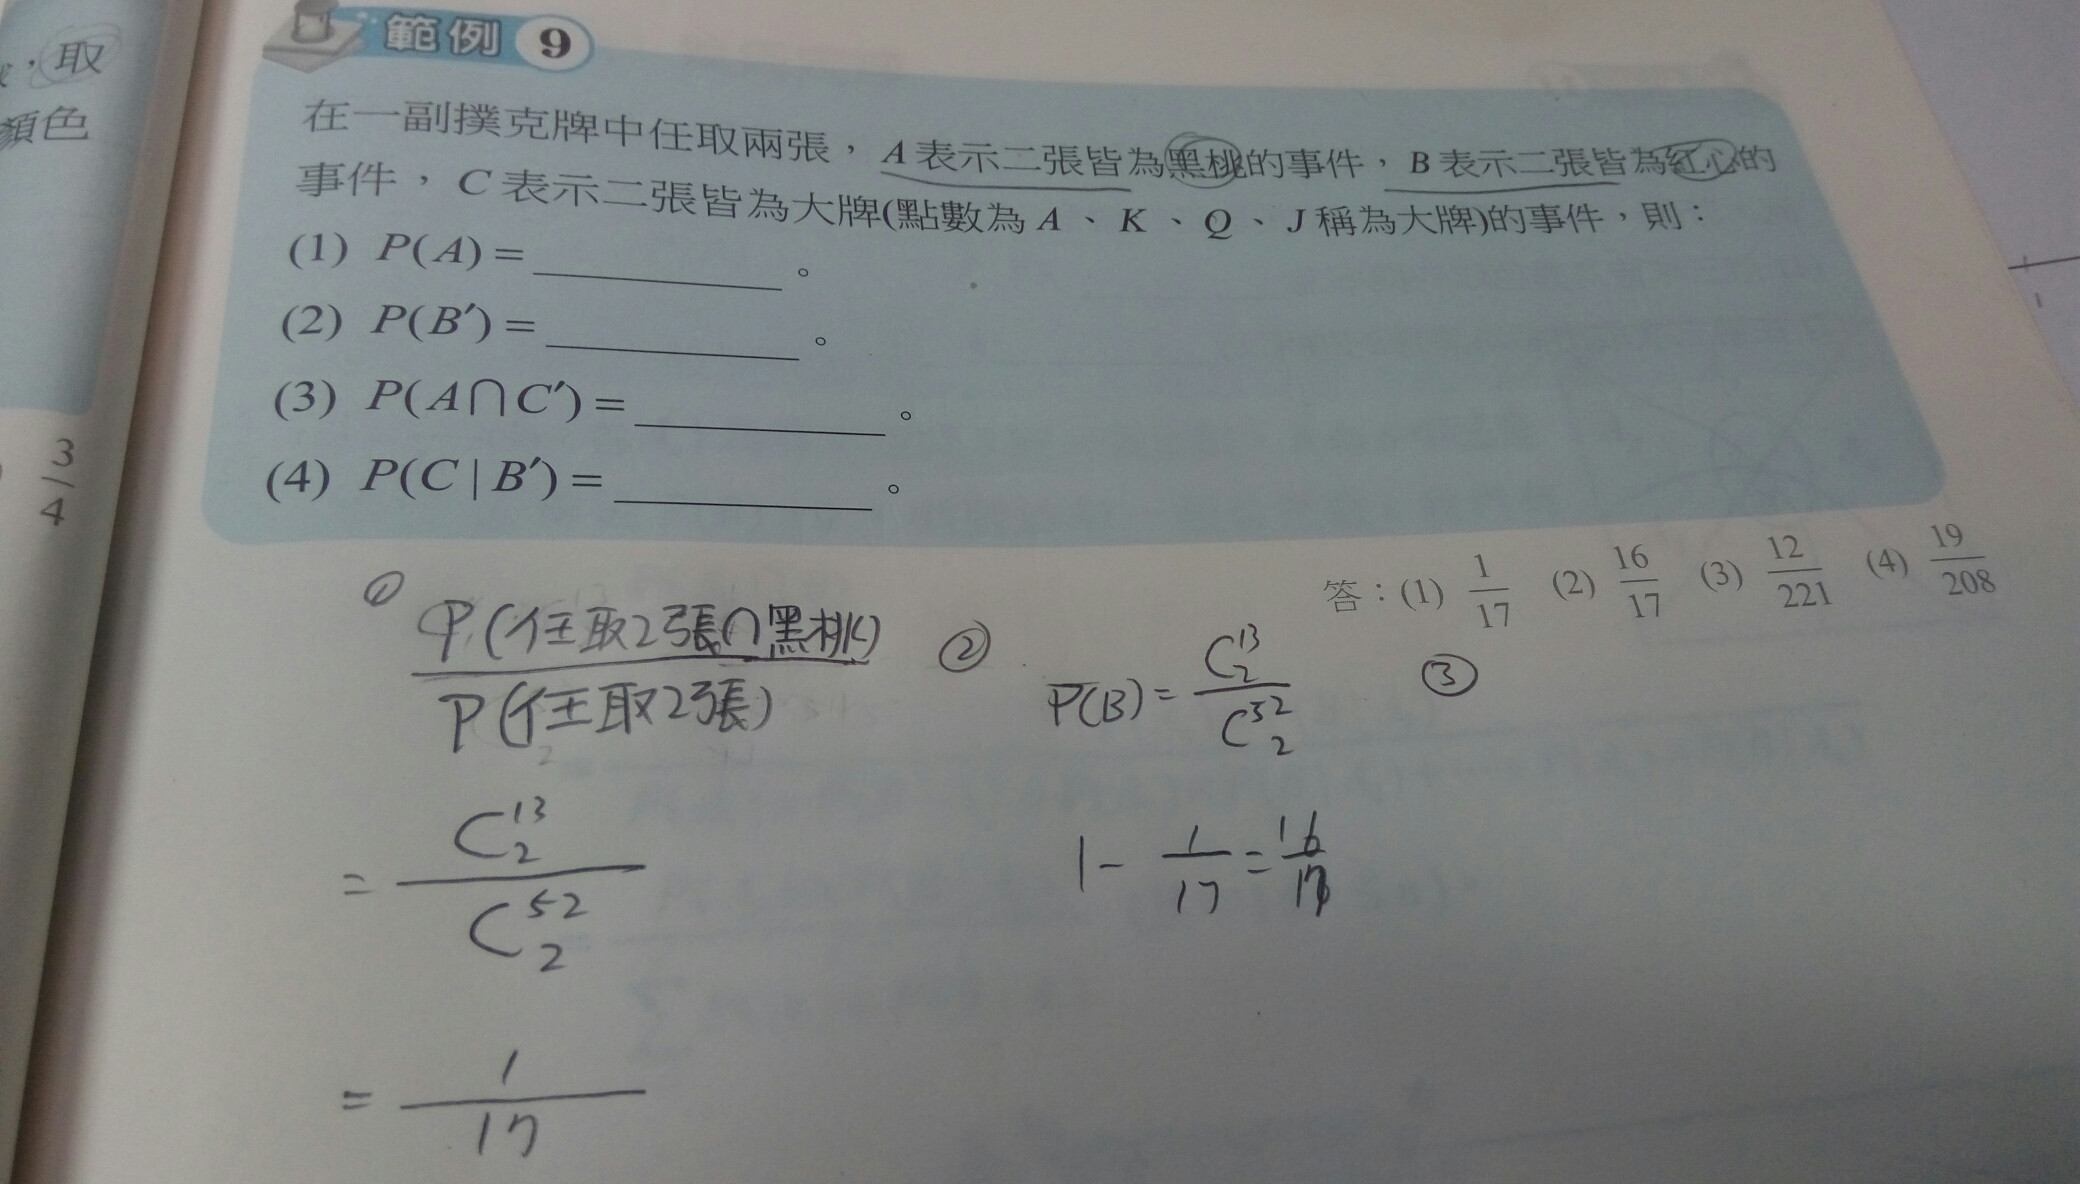 ，取
顏色
3/4
範例 9
在一副撲克牌中任取兩張，A表示二張皆為黑桃的事件，B表示二張皆為紅心的
事件，C表示二張皆為大牌(點數為A、K、Q、J稱為大牌)的事件，則：
(1) P(A)=＿＿＿＿＿。
(2) P(B′)=＿＿＿＿＿。
(3) P(A∩C′)=＿＿＿＿＿。
(4) P(C|B′)=＿＿＿＿＿。
答：(1) 1/17 (2) 16/17 (3) 12/221 (4) 19/208
① P(任取2張∩黑桃)/P(任取2張)
= C¹³₂/C⁵²₂
= 1/17
② P(B)= C¹³₂/C⁵²₂
1 - 1/17 = 16/17
③